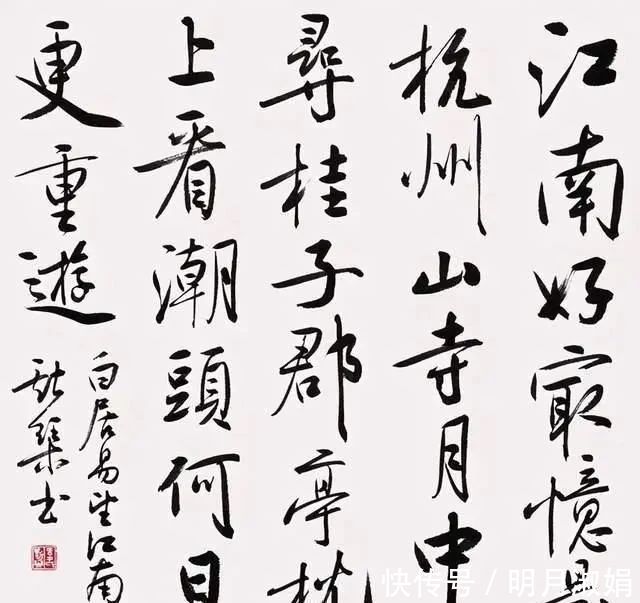 江南好最憶
杭州山寺月中
尋桂子郡亭枕
上看潮頭何日
更重遊
白居易望江南
书
快传号 / 明月淑娟